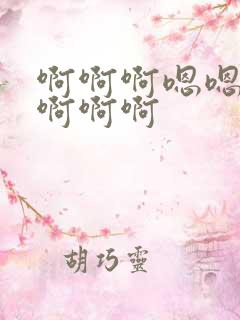 啊啊啊嗯嗯
啊啊啊
胡巧靈